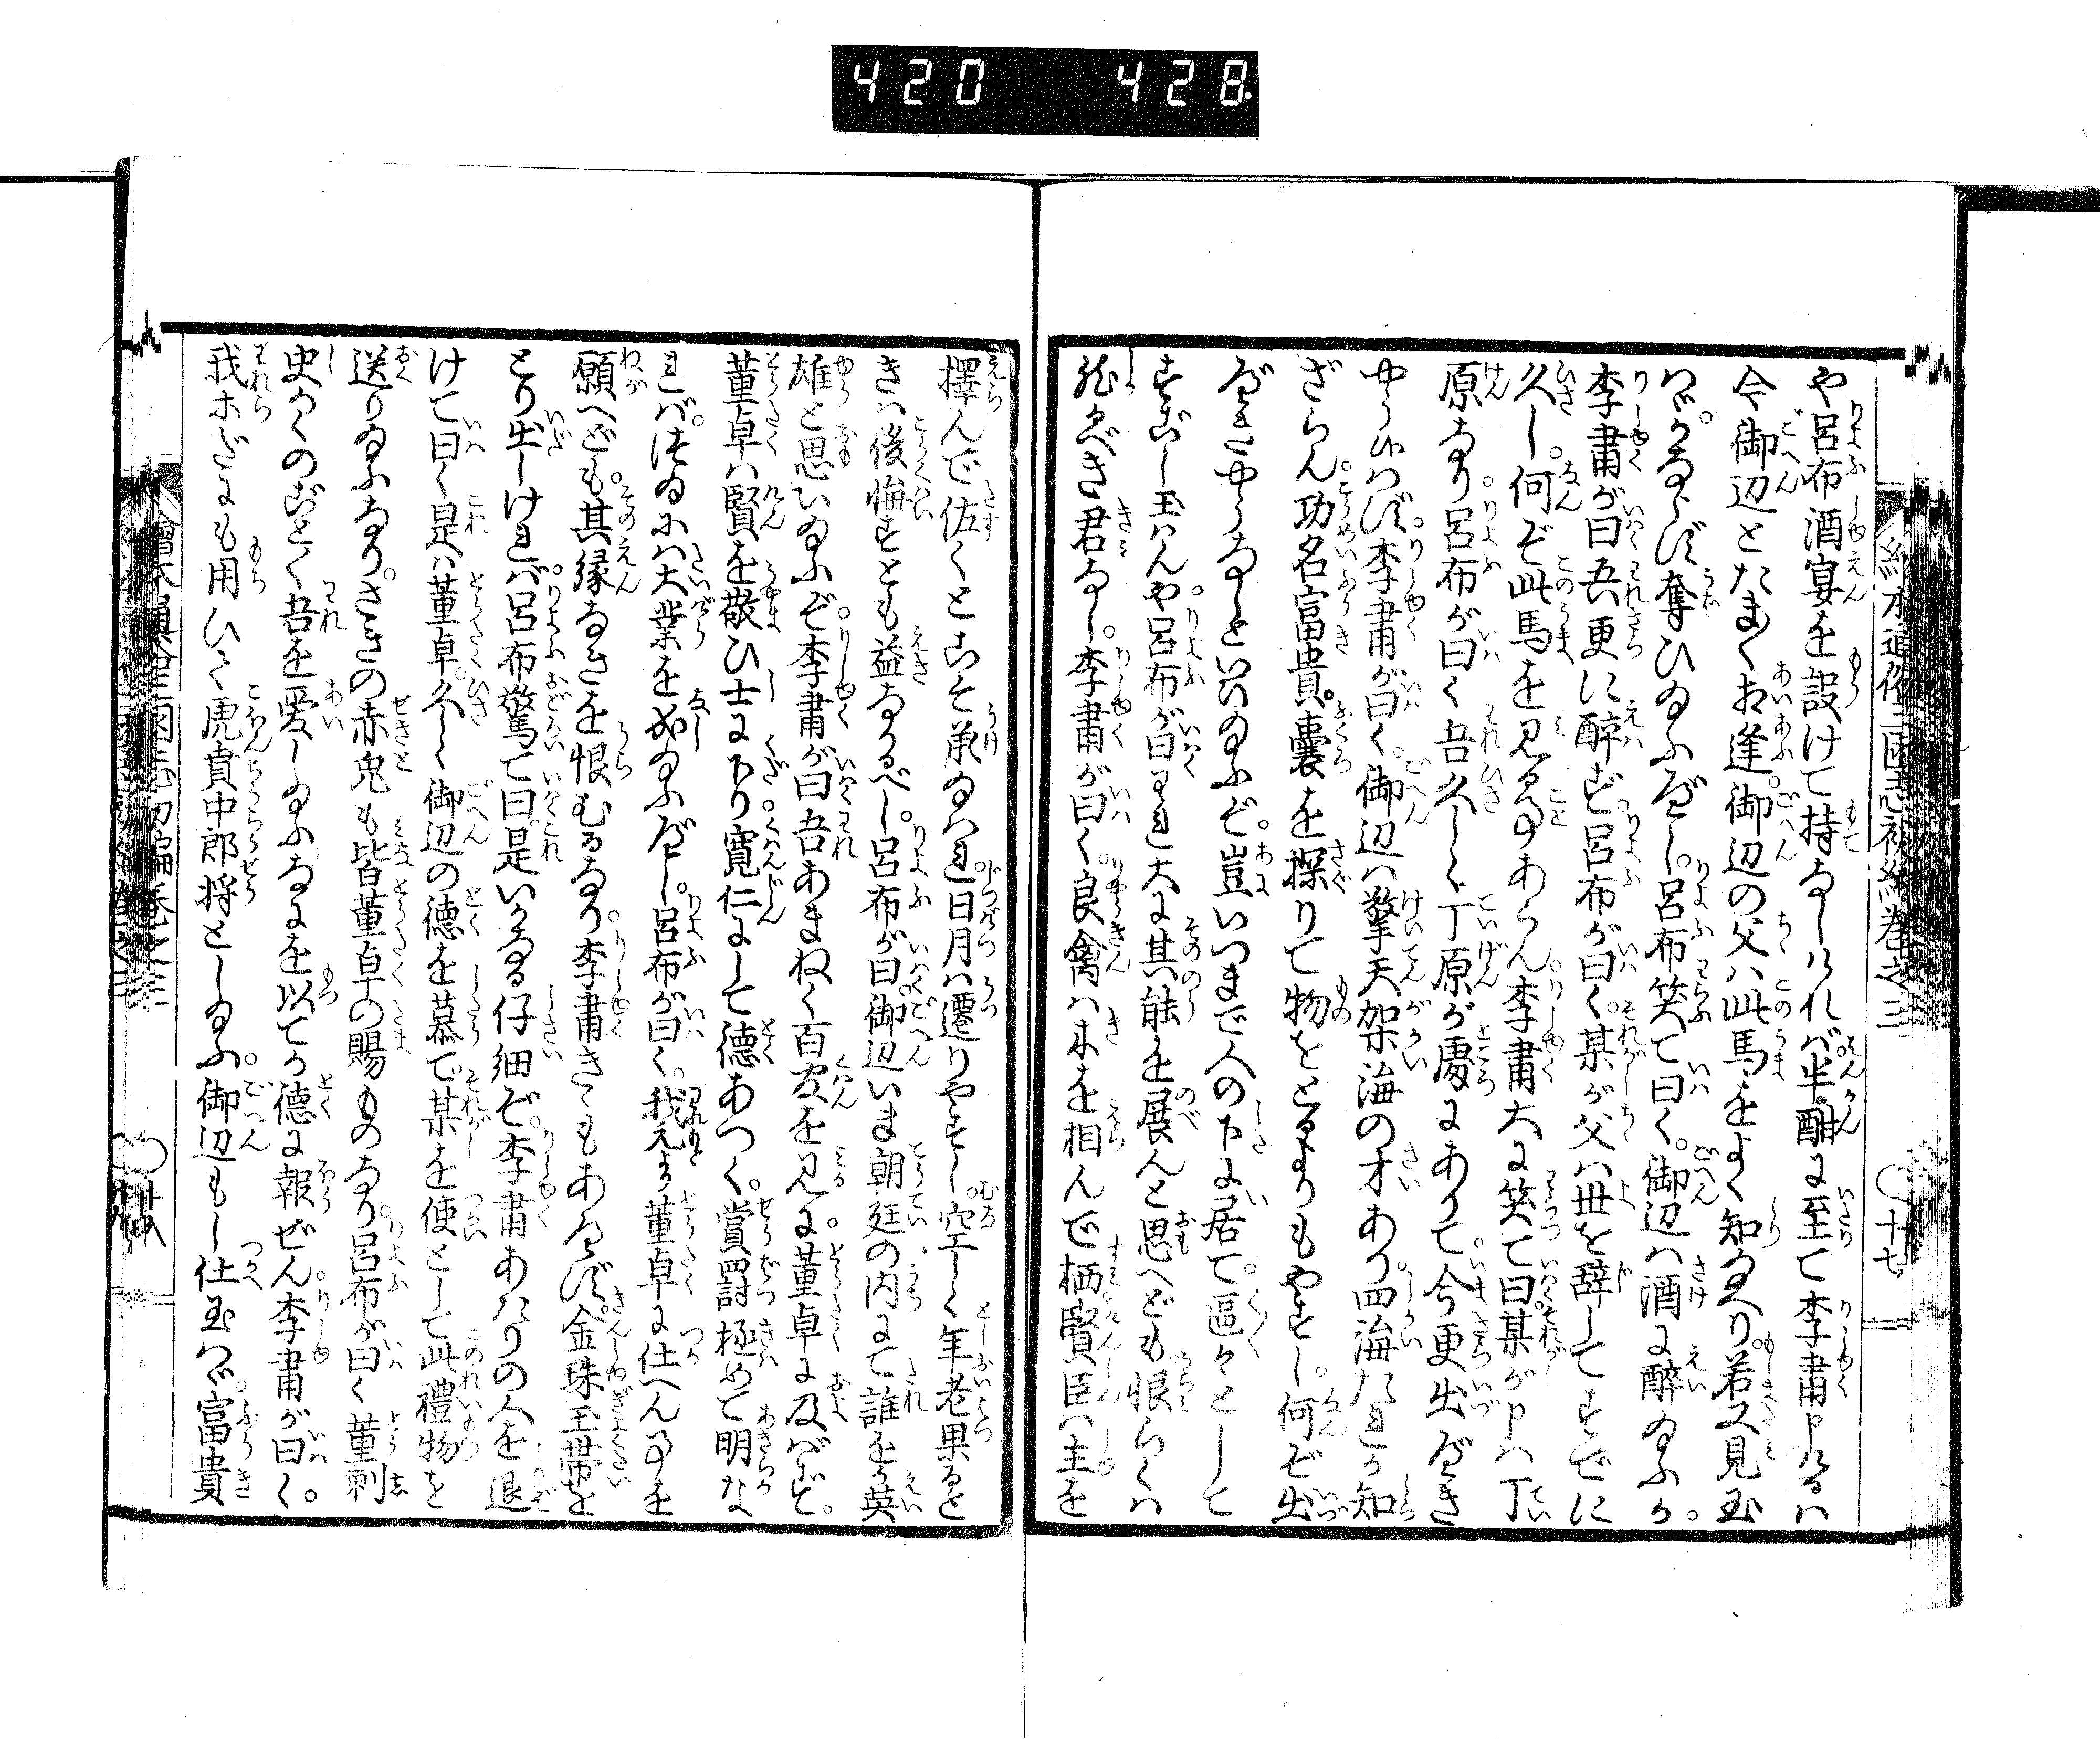 420 428
繪本通俗三國志初編卷之三 ○十七
や呂布酒宴を設けて持なしけれバ半酣に至て李肅申けるハ
今御辺とたま〱お逢御辺の父ハ此馬をよく知ゐへり若又見玉
ハゞかならず奪ひゐふべし。呂布笑て曰く。御辺ハ酒に醉ゐふか。
李肅が曰吾更に醉ず。呂布が曰く。某が父ハ世を辞してすでに
久し。何ぞ此馬を見る事あらん。李肅大に笑て曰某が申ハ丁
原なり。呂布が曰く吾久しく丁原が處にありて。今更出べき
やうハず。李肅が曰く。御辺ハ擎天架海の才あり四海たれか知
ざらん。功名富貴。囊を探りて物をとるよりもやすし。何ぞ出
べきやうなしといゐふぞ。豈いつまで人の下に居て。區々として
すごし玉ハんや。呂布が曰われ大に其能を展んと思へども恨らくハ
然るべき君なし。李肅が曰く。良禽ハ木を相んで栖賢臣ハ主を
擇んで佐くとこそ承ゐハれ。日月ハ遷りやすし。空しく年老果ると
きハ後悔すとも益なるべし。呂布が曰。御辺いま朝廷の内にて誰をか英
雄と思いゐふぞ。李肅が曰吾あまねく百官を見に。董卓に及バず。
董卓ハ賢を敬ひ士に下り。寛仁にして德あつく。賞罸極めて明な
れバ。つゐにハ大業を成ゐふべし。呂布が曰く。我元より董卓に仕へん事を
願へども。其縁なきを恨むるなり。李肅きゝもあへず。金珠玉帯を
とり出しけれバ。呂布驚て曰。是いかなる仔細ぞ。李肅あたりの人を退
けて曰く是ハ董卓。久しく御辺の德を慕て。某を使として此禮物を
送りゐふなり。さきの赤兎も皆董卓の賜ものなり。呂布が曰く董刺
史かくのごとく吾を愛しゐふなにを以てか德に報ぜん。李肅が曰く。
我ホだにも用ひて虎賁中郎将としゐふ。御辺もし仕玉ハゞ。富貴
繪本通俗三國志初編卷之三 ○十八